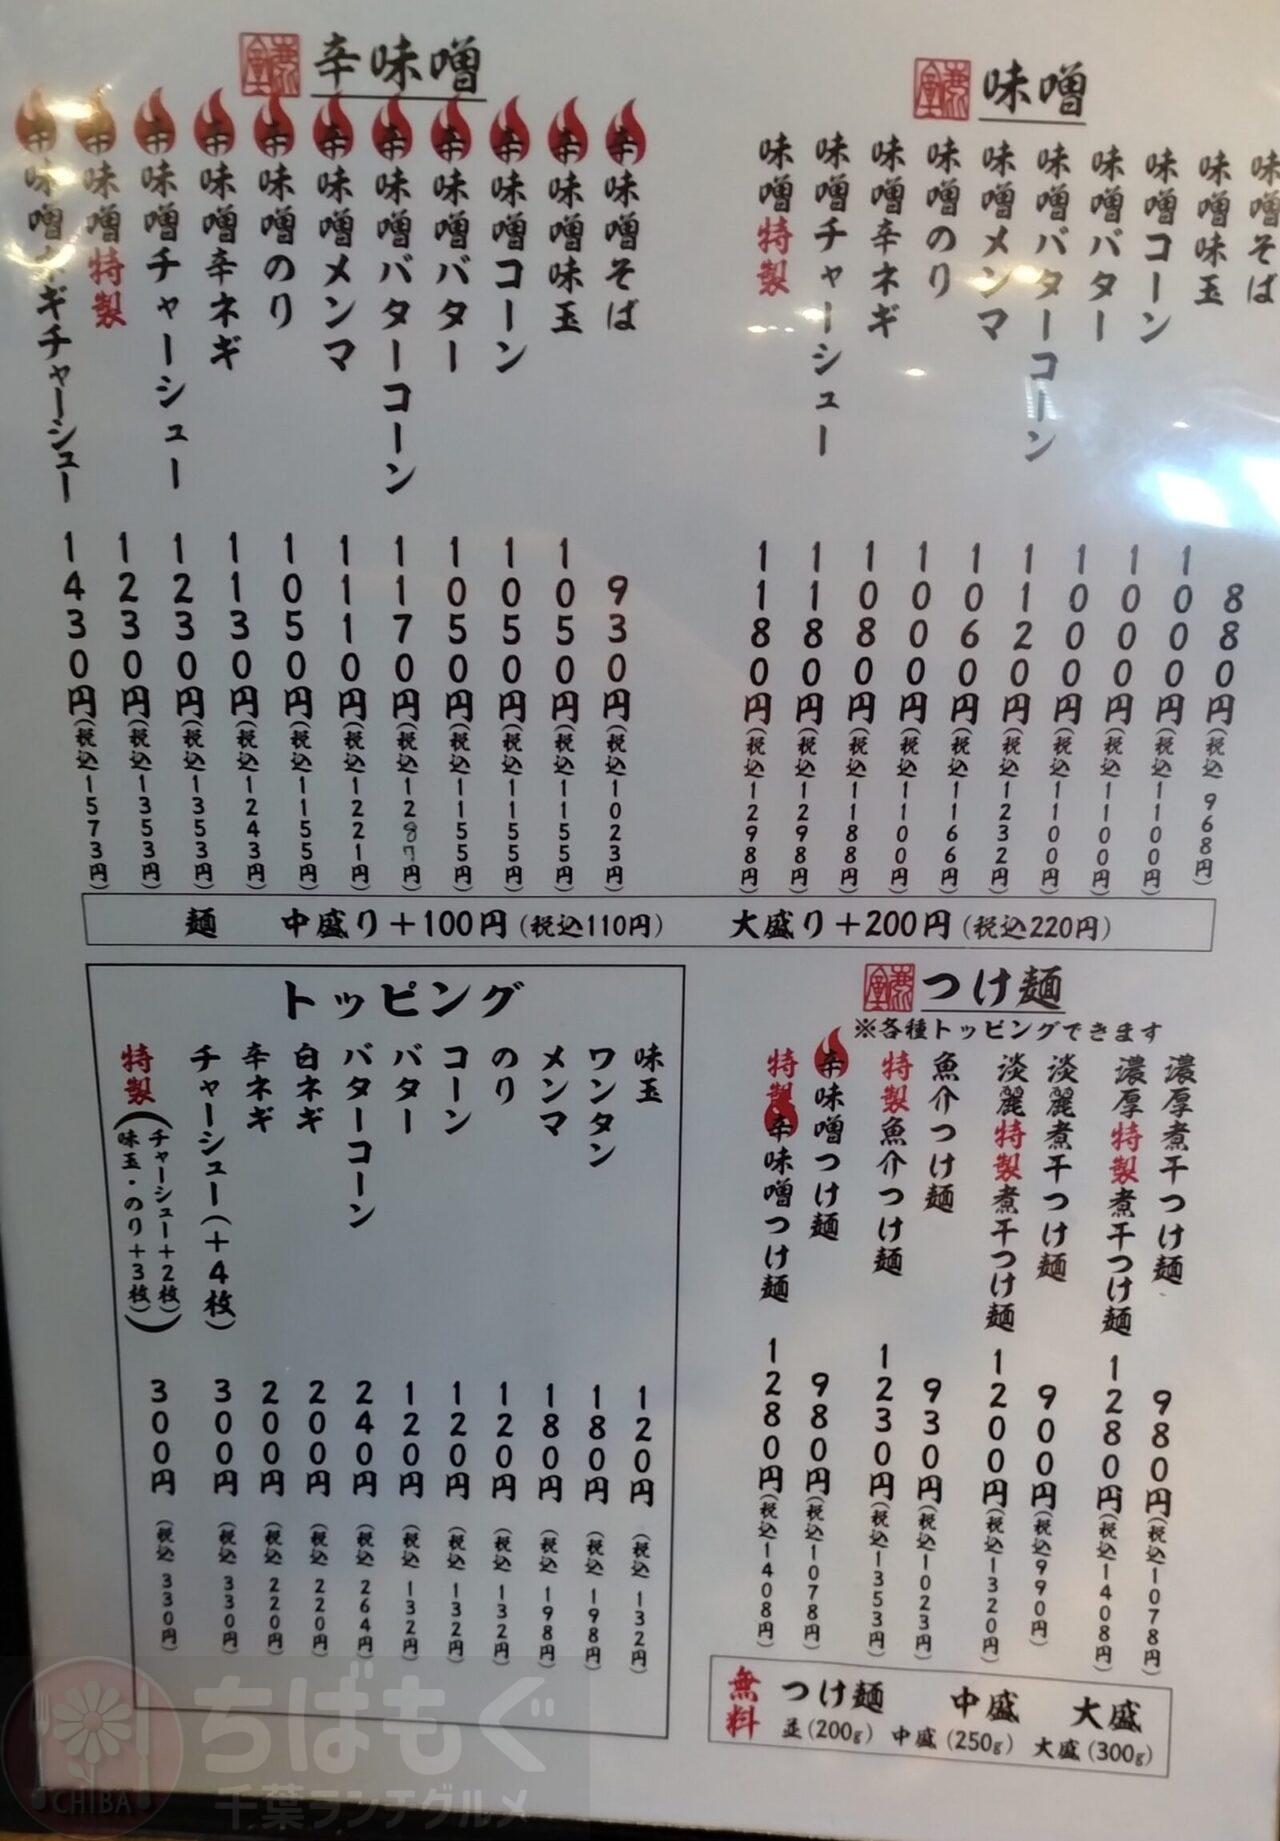 味噌
味噌そば 880円(税込 968円)
味噌味玉 1000円(税込1100円)
味噌コーン 1000円(税込1100円)
味噌バター 1000円(税込1100円)
味噌バターコーン 1120円(税込1232円)
味噌メンマ 1060円(税込1166円)
味噌のり 1000円(税込1100円)
味噌辛ネギ 1080円(税込1188円)
味噌チャーシュー 1180円(税込1298円)
味噌特製 1180円(税込1298円)
辛味噌
辛味噌そば 930円(税込1023円)
辛味噌味玉 1050円(税込1155円)
辛味噌コーン 1050円(税込1155円)
辛味噌バター 1050円(税込1155円)
辛味噌バターコーン 1170円(税込1287円)
辛味噌メンマ 1110円(税込1221円)
辛味噌のり 1050円(税込1155円)
辛味噌辛ネギ 1130円(税込1243円)
辛味噌チャーシュー 1230円(税込1353円)
辛味噌特製 1230円(税込1353円)
辛味噌ネギチャーシュー 1430円(税込1573円)
麺 中盛り+100円(税込110円) 大盛り+200円(税込220円)
つけ麺
※各種トッピングできます
濃厚煮干つけ麺 980円(税込1078円)
濃厚特製煮干つけ麺 1280円(税込1408円)
淡麗煮干つけ麺 900円(税込990円)
淡麗特製煮干つけ麺 1200円(税込1320円)
魚介つけ麺 930円(税込1023円)
特製魚介つけ麺 1230円(税込1353円)
辛味噌つけ麺 980円(税込1078円)
特製辛味噌つけ麺 1280円(税込1408円)
無料 つけ麺 中盛 大盛
並(200g) 中盛(250g) 大盛(300g)
トッピング
味玉 120円(税込 132円)
ワンタン 180円(税込 198円)
メンマ 180円(税込 198円)
のり 120円(税込 132円)
コーン 120円(税込 132円)
バター 120円(税込 132円)
バターコーン 240円(税込 264円)
白ネギ 200円(税込 220円)
辛ネギ 200円(税込 220円)
チャーシュー(+4枚) 300円(税込 330円)
特製(チャーシュー+2枚 味玉・のり+3枚) 300円(税込 330円)
ちばもぐ
千葉ランチグルメ
CHIBA